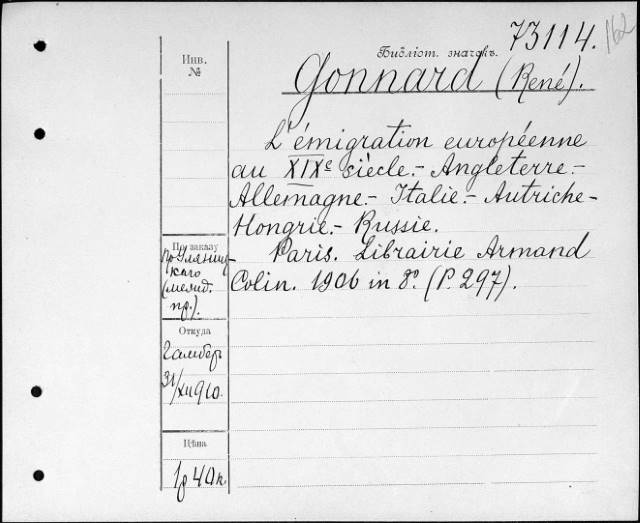 73114.
162
Библіот. значекъ.
Инв.
№
Gonnard (René).
L'émigration européenne
au XIXe siècle.- Angleterre.-
Allemagne.- Italie.- Autriche-
Hongrie.- Russie.
Paris. Librairie Armand
Colin. 1906 in 8°. (P. 297).
По заказу
пр. Уляниц-
каго
(межд.
пр.).
Откуда
Гамбер
31/XII 910.
Цѣна
1р 40к.